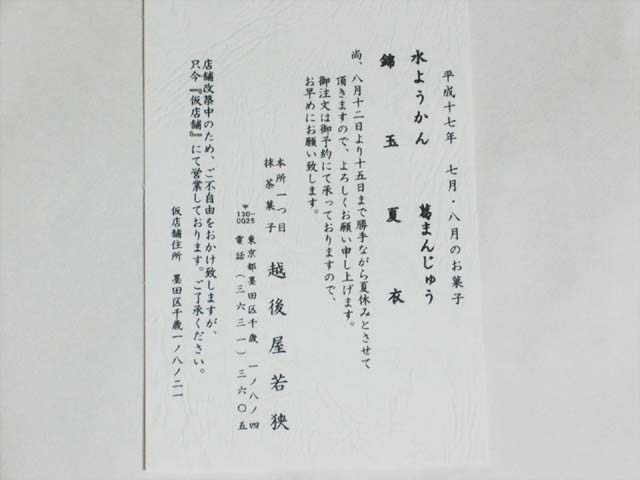 平成十七年 七月・八月のお菓子
水ようかん 葛まんじゅう
錦玉 夏衣
尚、八月十二日より十五日まで勝手ながら夏休みとさせて
頂きますので、よろしくお願い申し上げます。
御注文は御予約にて承っておりますので、
お早めにお願い致します。
本所一つ目
抹茶菓子 越後屋若狭
〒130-0025 東京都墨田区千歳 一ノ八ノ四
電話(三六三一)三六〇五
店舗改築中のため、ご不自由をおかけ致しますが、
只今『仮店舗』にて営業しております。ご了承ください。
仮店舗住所 墨田区千歳一ノ八ノ二一